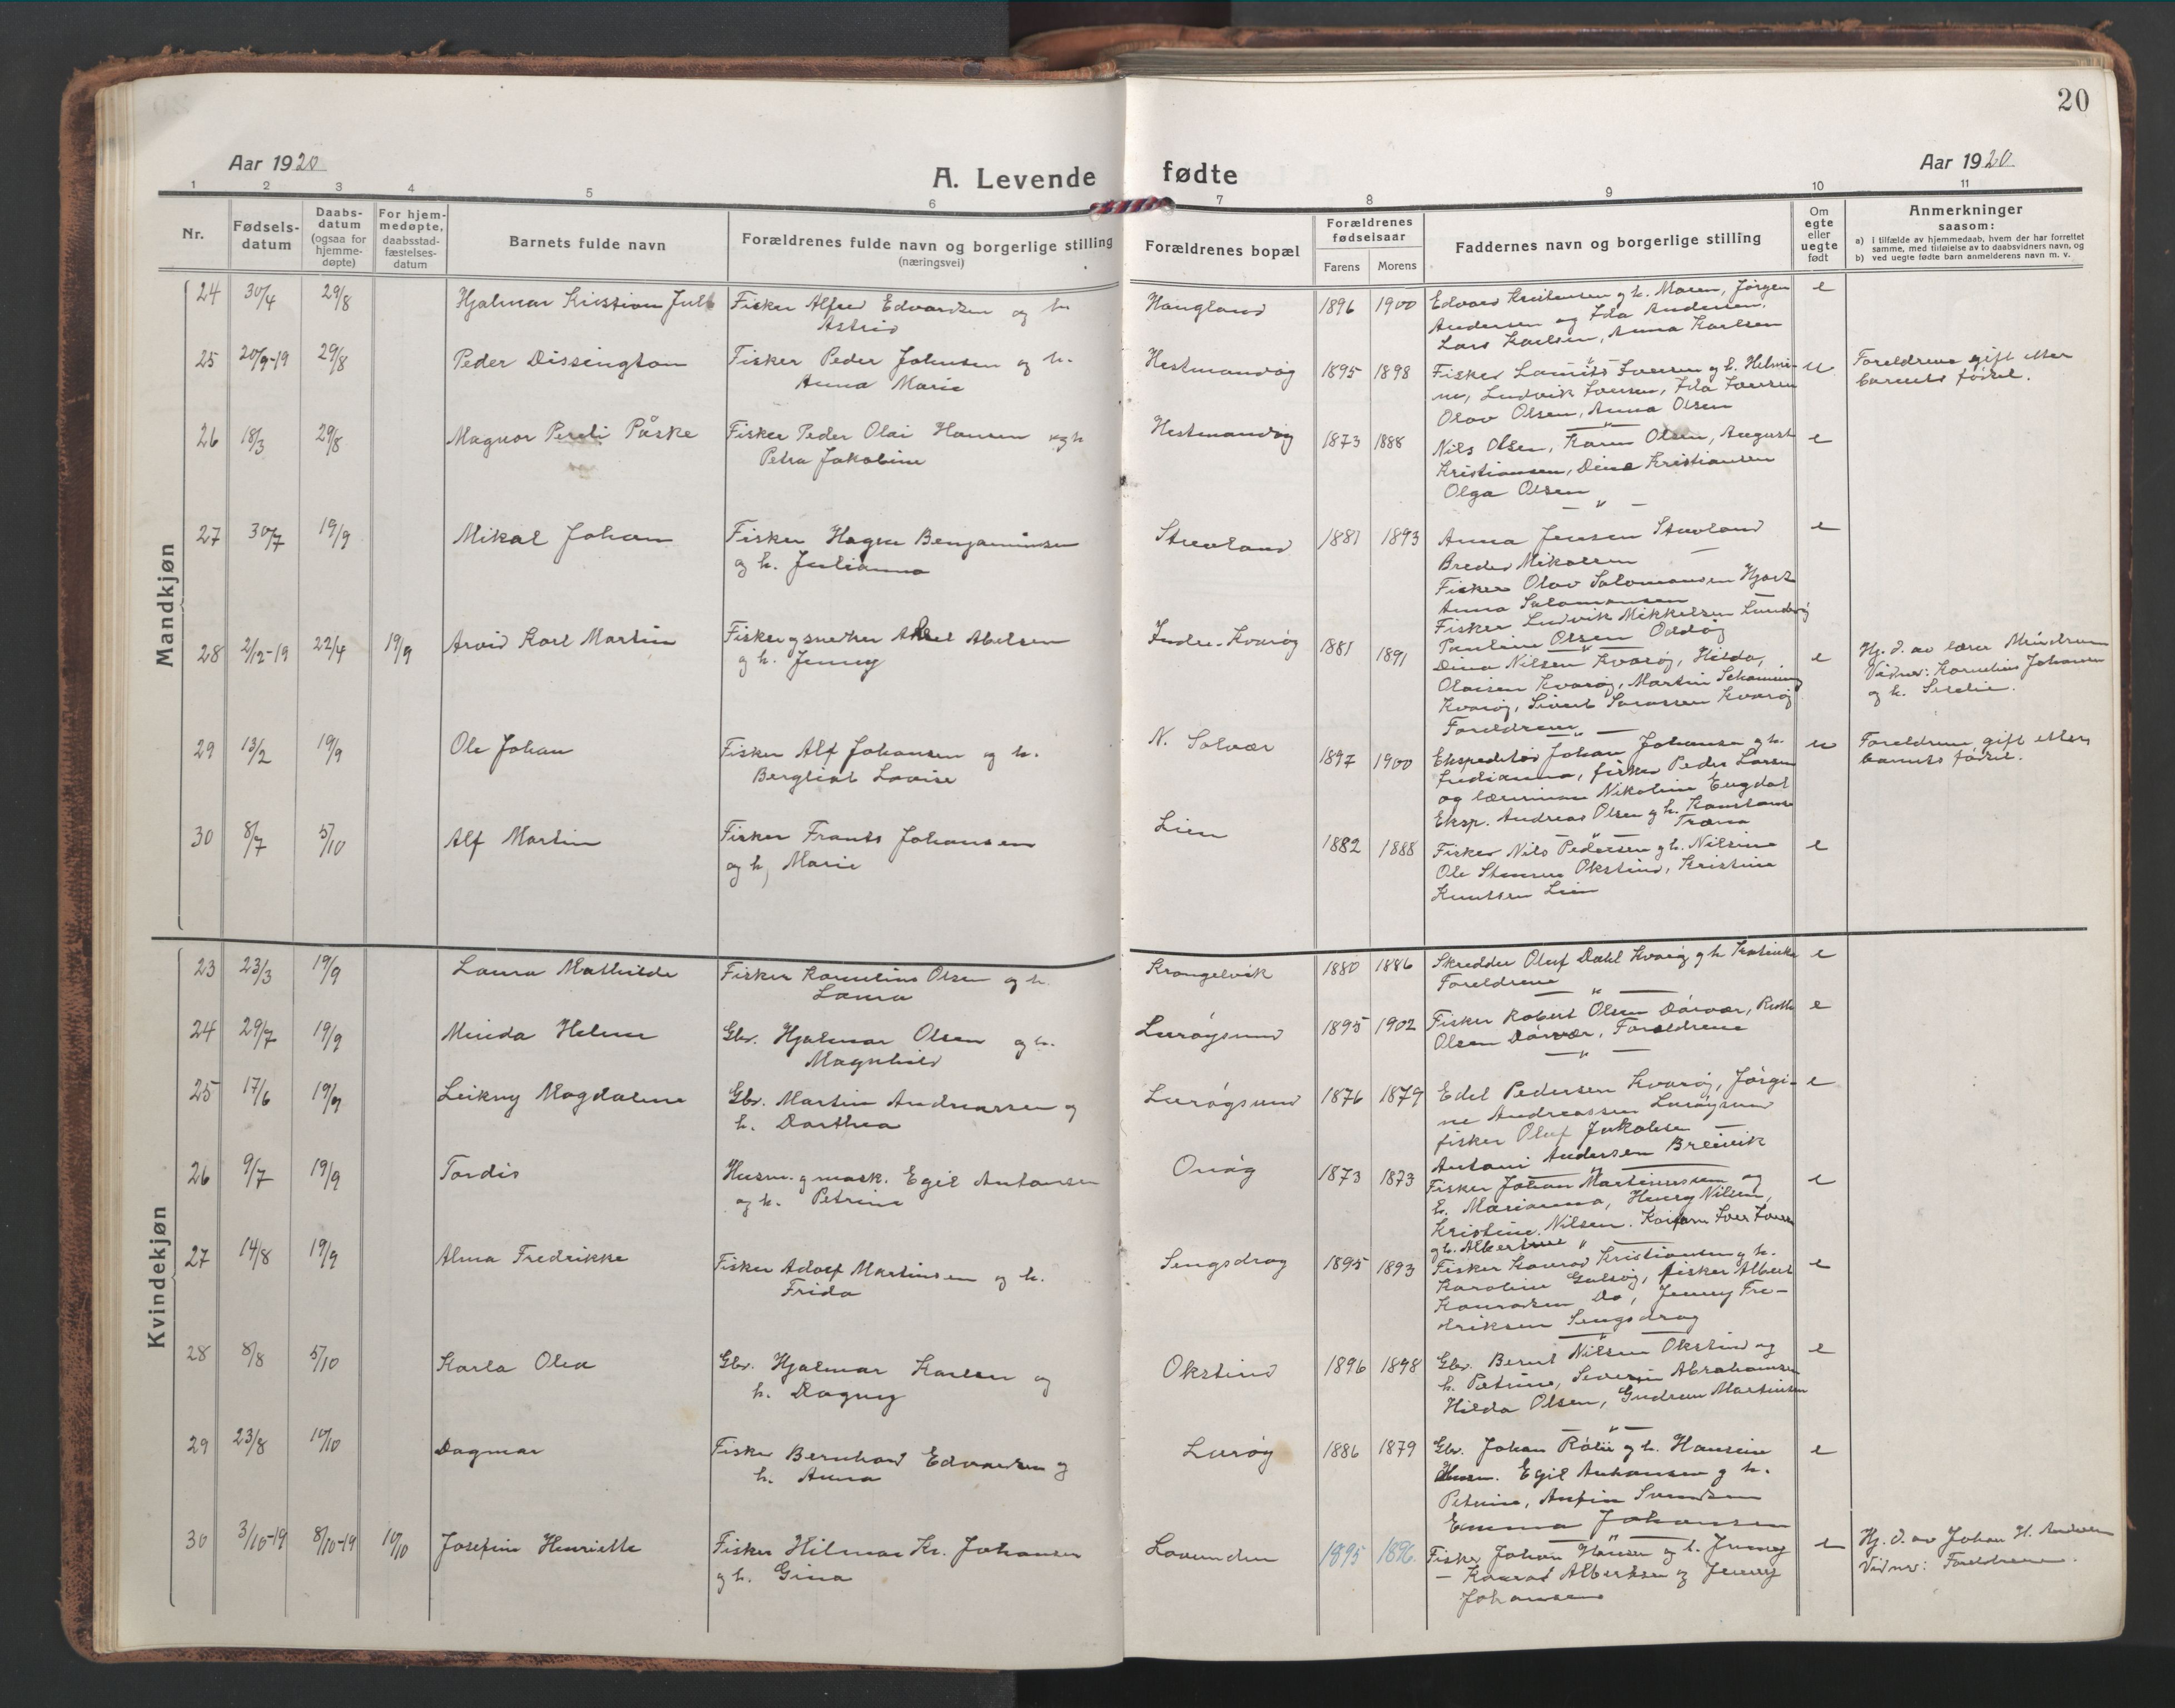 20
Aar 1920
A. Levende
fødte
Aar 1920
1 2 3 4 5 6 7 8 9 10 11
Nr.
Fødsels-
datum
Daabs-
datum
(ogsaa for
hjemme-
døpte)
For hjem-
medøpte,
daabsstad-
fæstelses-
datum
Barnets fulde navn
Forældrenes fulde navn og borgerlige stilling
(næringsvei)
Forældrenes bopæl
Forældrenes
fødselsaar
Farens Morens
Faddernes navn og borgerlige stilling
Om
egte
eller
uegte
født
Anmerkninger
saasom:
a) i tilfælde av hjemmedaab, hvem der har forrettet
samme, med tilføielse av to daabsvidners navn, og
b) ved uegte fødte barn anmelderens navn m. v.
Mandkjøn
24 30/4 29/8 Hjalmar Kristian Fisker Alfred Edvardsen og h.
Astrid
Haugland 1896 1900 Edvard Kristensen og h. Maren, Jørgen e
Andersen og Ida Andersen,
Lars Karlsen, Anna Karlsen
25 20/9-19 29/8 Peder Dissington Fisker Peder Johnsen og h.
Anna Marie
Hestmandøy 1895 1898 Fisker Iversen og h. Helmi- u Foreldrene gift etter
ne, Ludvik Iversen, Ida Iversen barnets fødsel.
Olav Olsen, Anna Olsen
26 18/3 29/8 Magnor Påske Fisker Peder Olai Hansen og h
Petra Jakobine
Hestmandøy 1873 1888 Nils Olsen, Karen Olsen, August e
Kristiansen, Dina Kristiansen
Olga Olsen
27 30/7 19/9 Mikal Johan Fisker Hagen Benjaminsen
og h. Julianna
Stuvland 1881 1893 Anna Jensen Stuvland e
Mikalsen
Fisker Olav Salomonsen Hjart
Anna Salomonsen
Fisker Ludvik Mikkelsen
Pauline Olsen
28 2/12-19 22/4 19/9 Arvid Karl Martin Fisker og snekker Aksel Abelsen
og h. Jenny
Indre-Kvarøy 1881 1891 Dina Nilsen Kvarøy, Hilda, e Hj. d. av lærer
Olaisen Kvarøy, Martin Vidner: Kornelius Johansen
Kvarøy, Sivert Kvarøy og h.
Foreldrene
29 13/2 19/9 Ole Johan Fisker Alf Johansen og h.
Bergliot Lovise
N. Solvær 1897 1900 Ekspeditør Johan Johansen og h. u Foreldrene gift etter
fisker Peder Larsen barnets fødsel.
og Nikoline Engdal
Eksp. Andreas Olsen og h. Konstanse
Træna
30 8/7 5/10 Alf Martin Fisker Frants Johansen
og h, Marie
Lien 1882 1888 Fisker Nils Pedersen og h. Nilsine e
Ole Okstind, Kristine
Knutsen Lien
Kvindekjøn
23 23/3 19/9 Laura Mathilde Fisker Kornelius Olsen og h.
Laura
Krangelvik 1880 1886 Skredder Oluf Dahl Kvarøy og h e
Foreldrene
24 29/7 19/9 Minda Helene Gbr. Hjalmar Olsen og h.
Magnhild
Lurøysund 1895 1902 Fisker Robert Olsen Dørvær, e
Olsen Dørvær, Foreldrene
25 17/6 19/9 Leikny Magdalene Gbr. Martin Andreassen og
h. Darthea
Lurøysund 1876 1879 Edel Pedersen Kvarøy, Jørgi- e
ne Andreassen Lurøysund
fisker Oluf Jakobsen
Antoni Andersen Breivik
26 9/7 19/9 Tordis Husm. og mask. Egil Antonsen
og h. Petrine
Onøy 1873 1873 Fisker Johan Martinussen og e
h. Marianna, Henry Nilsen,
Kristine Nilsen.
og h. Albertine
27 14/8 19/9 Alma Fredrikke Fisker Adolf Martinsen og h.
Frida
Sengsdrag 1895 1893 Fisker Konrad Kristiansen og h. e
Karoline fisker Albert
Konradsen Do, Jenny Fre-
driksen Sengsdrag
28 8/8 5/10 Karla Olea Gbr. Hjalmar Karlsen og
h. Dagny
Okstind 1896 1898 Gbr. Bernt Nilsen Okstind og e
h. Petrine, Severin Abrahamsen
Hilda Olsen, Gudrun Martinsen
29 23/8 10/10 Dagmar Fisker Bernhard Edvardsen og
h. Anna
Lurøy 1886 1879 Gbr. Johan Rølie og h. Hansine e
Husm. Egil Antonsen og h.
Petrine,
Emma Johansen
30 3/10-19 8/10-19 10/10 Josefine Henriette Fisker Hilmar Kr. Johansen
og h. Gina
Lovunden 1895 1896 Fisker Johan Hansen og h. Jenny e Hj. d. av Johan H.
— Konrad Albertsen og Jenny Vidner: Foreldrene.
Johansen